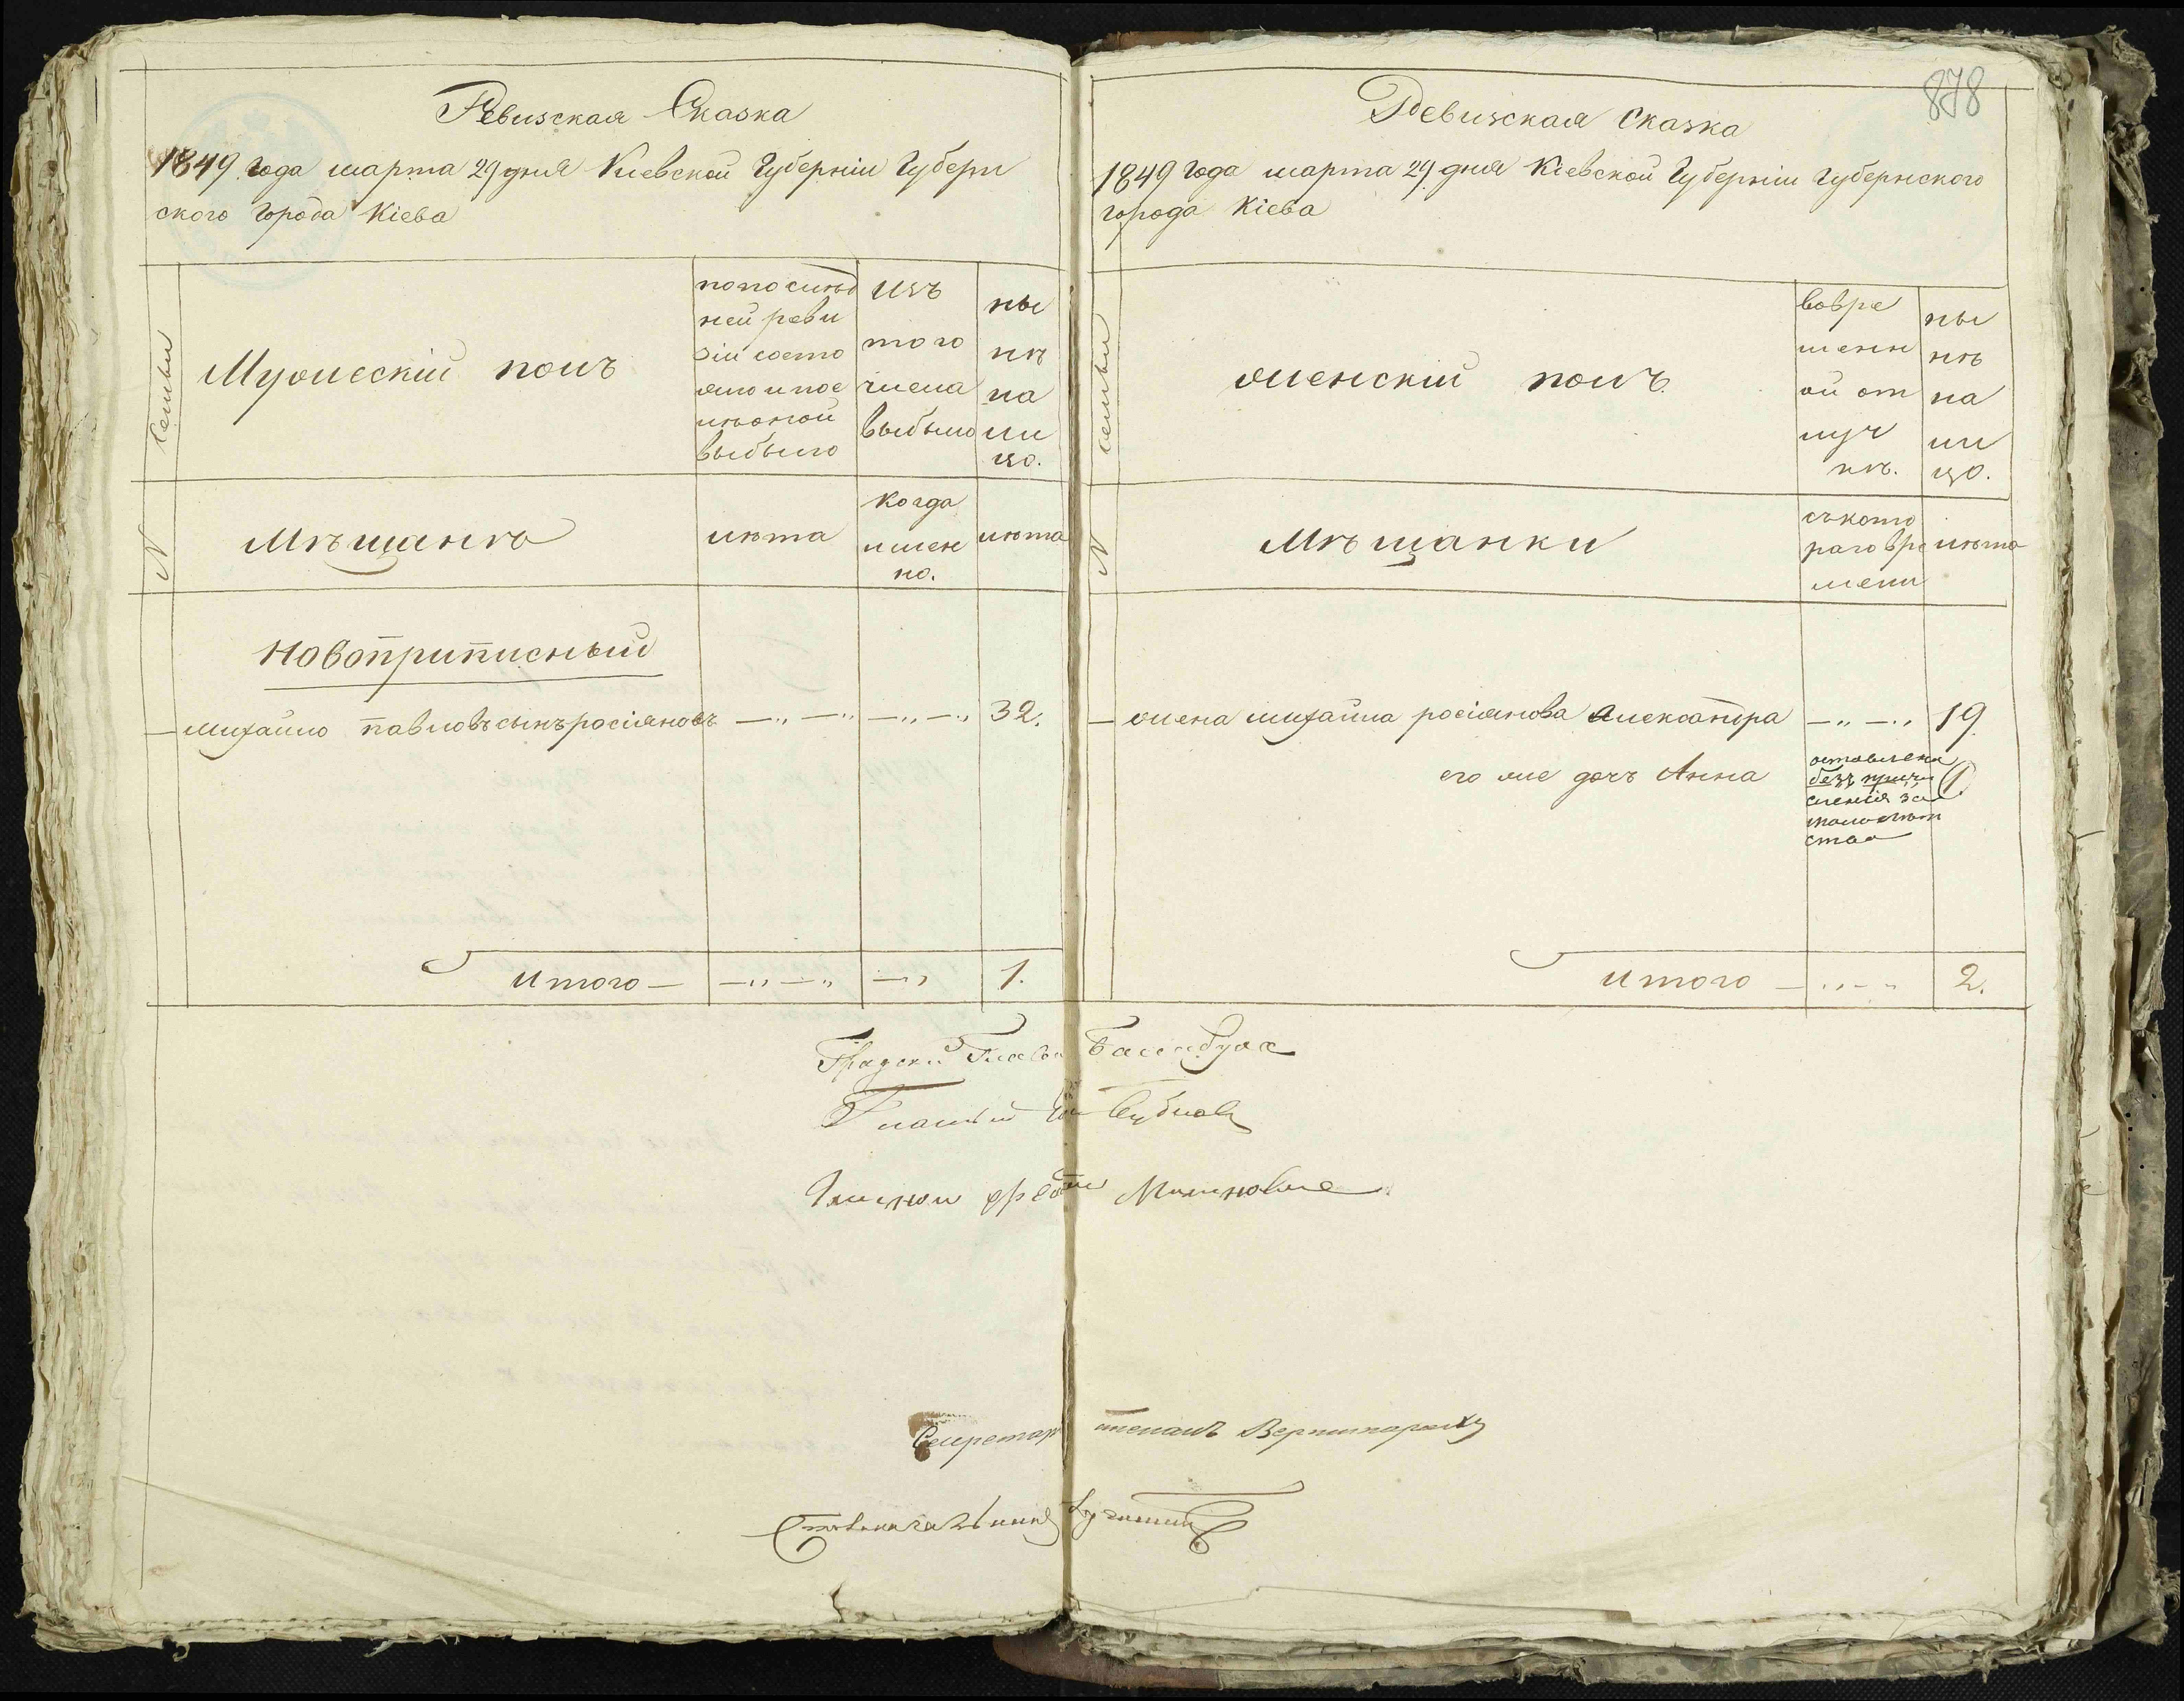 Ревизская Сказка
1849 года марта 29 дня Киевской Губерніи Губерн
ского Города Кіева
№ Семьи
Мужескій полъ
по послѣд
ней реви
зіи состо
яло и пос
лѣ оной
выбыло
Изъ
того
числа
выбыло
ны
нѣ
на
ли
цо.
Мѣщанѣ
лѣта
когда
имен
но.
лѣта
Новоприписный
— Михайло павловъ сынъ росіяновъ —„ —„ —„ —„ 32.
Итого — —„ —„ —„ 1.
878
Ревизская Сказка
1849 года марта 29 дня Кіевской Губерніи Губернского
города Кіева
№ семьи
женскій полъ
вовре
менн
ой от
луч
кѣ.
ны
нѣ
на
ли
цо.
Мѣщанки
съкото
раго вре
мени
лѣта
— жена михайла росіянова Александра —„ —„ 19.
его же дочъ Анна
оставлена
безъ причи
сленія за
малолѣт
ства
1.
Итого — —„ —„ 2.
Градскій Глава
Гласный
Гласный
Секретарь
Столоначальникъ